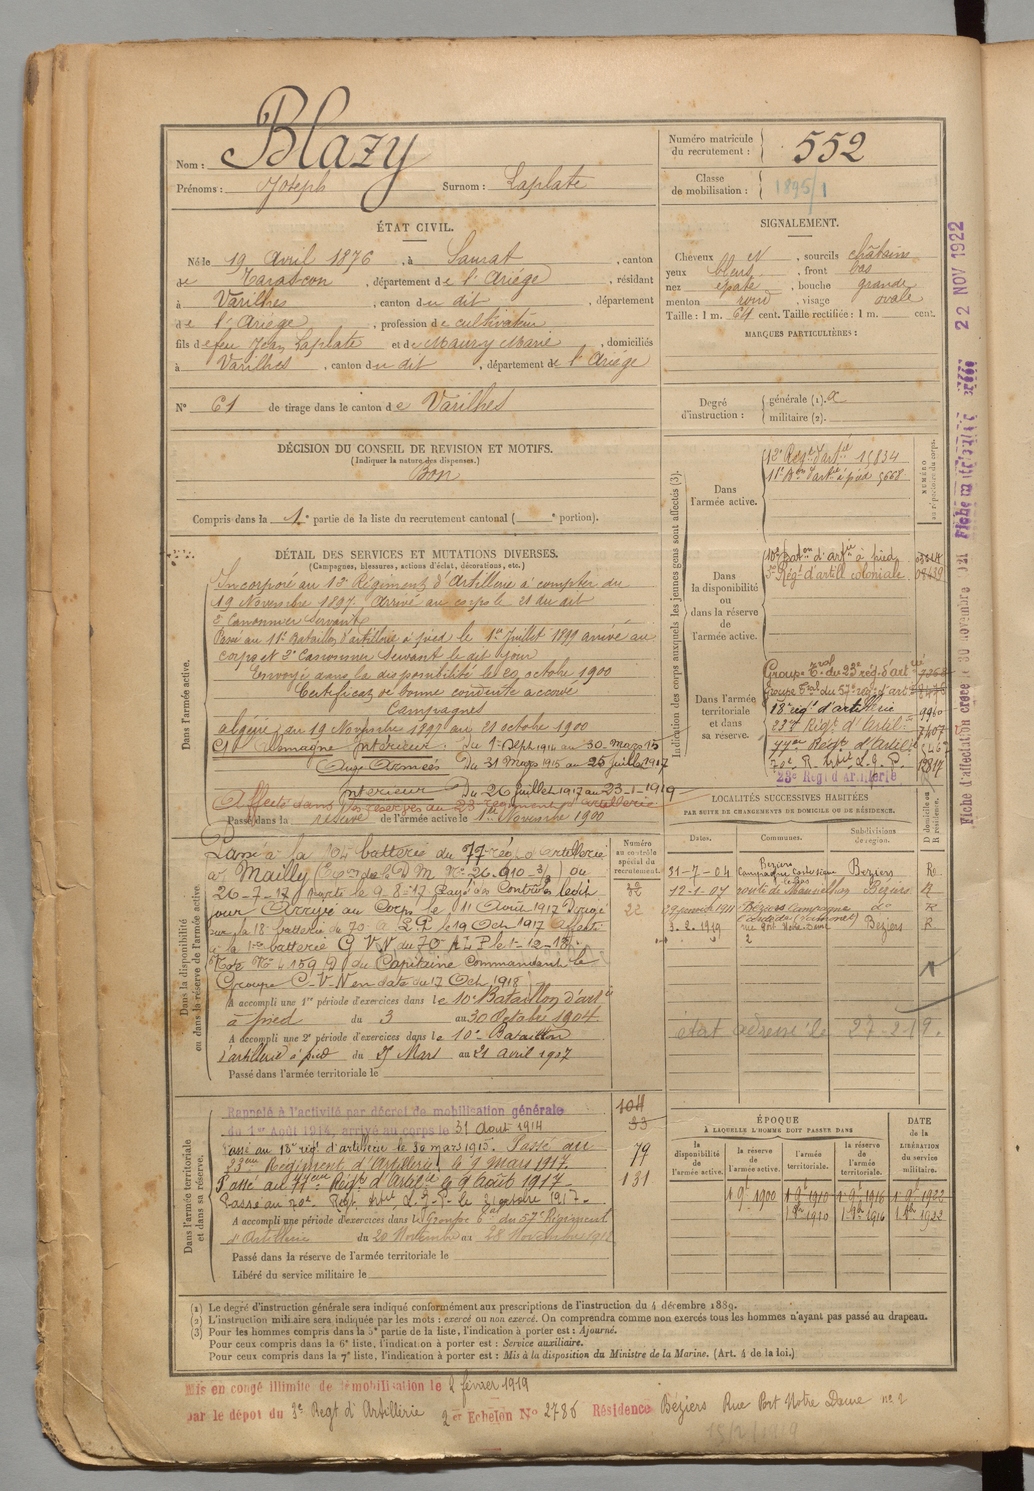 Nom : Blazy
Prénoms : Joseph Surnom : Laplate
Numéro matricule du recrutement : 552
Classe de mobilisation : 1895/1
ÉTAT CIVIL.
Né le 19 Avril 1876, à Saurat, canton
de Tarascon, département de l'Ariège, résidant
à Varilhes, canton du dit, département
de l'Ariège, profession de cultivateur
fils de feu Jean Laplate et de Maury Marie, domiciliés
à Varilhes, canton du dit, département de l'Ariège
N° 61 de tirage dans le canton de Varilhes
SIGNALEMENT.
Cheveux N, sourcils châtains
yeux bleus, front bas
nez épaté, bouche grande
menton rond, visage ovale
Taille : 1 m. 64 cent. Taille rectifiée : 1 m. cent.
MARQUES PARTICULIÈRES :
Degré d'instruction : générale (1). 2
militaire (2).
DÉCISION DU CONSEIL DE REVISION ET MOTIFS.
(Indiquer la nature des dispenses.)
Bon
Compris dans la 1e partie de la liste du recrutement cantonal ( e portion).
DÉTAIL DES SERVICES ET MUTATIONS DIVERSES.
(Campagnes, blessures, actions d'éclat, décorations, etc.)
Dans l'armée active.
Incorporé au 12e Régiment d'Artillerie à compter du
19 Novembre 1897. Arrivé au corps le 21 du dit
2e Canonnier servant
Passé au 11e Bataillon d'artillerie à pied le 1er Juillet 1899 arrivé au
corps et 2e Canonnier Servant le dit jour
Envoyé dans la disponibilité le 20 octobre 1900
Certificat de bonne conduite accordé
Campagnes
Algérie du 19 Novembre 1897 au 21 octobre 1900
Cl Allemagne Intérieur : Du 1er Sept 1914 au 30 mars 15
Aux Armées Du 31 Mars 1915 au 25 juillet 1917
Intérieur Du 26 juillet 1917 au 23-1-1919
Affecté dans les réserves au 23e régiment d'artillerie
Passé dans la réserve de l'armée active le 1er Novembre 1900
Dans la disponibilité ou dans la réserve de l'armée active.
Passé à la 104 batterie du 77e rég d'artillerie
à Mailly D M No 26.910-3/3 du
26-7-17 parti le 9-8-17 Pays
jour Arrivé au Corps le 11 Août 1917 Dirigé
sur la 18e batterie du 70e A L P le 19 Oct 1917 Affecté
à la 1re batterie C V N du 70 A L P le 1-12-18
Note No 4159 D du Capitaine Commandant le
Groupe C-V-N en date du 17 Oct 1918
A accompli une 1re période d'exercices dans le 10e Bataillon d'artie
à pied du 3 au 30 Octobre 1904
A accompli une 2e période d'exercices dans le 10e Bataillon
d'artillerie à pied du 25 Mars au 21 avril 1907
Passé dans l'armée territoriale le
Dans l'armée territoriale et dans sa réserve.
Rappelé à l'activité par décret de mobilisation générale
du 1er Août 1914, arrivé au corps le 31 Août 1914
Passé au 18e rég. d'artillerie le 30 mars 1915. Passé au
23eme Régiment d'Artillerie le 1 mars 1917.
Passé au 77eme Régt d'Artie le 9 août 1917.
Passé au 70e Régt Artie L. G. P. le 21 octobre 1917.
A accompli une période d'exercices dans le Groupe du 57e Régiment
d'Artillerie du 20 Novembre au 28 Novembre 1912
Passé dans la réserve de l'armée territoriale le
Libéré du service militaire le
Numéro au contrôle spécial du recrutement.
22
104
33
79
131
Indication des corps auxquels les jeunes gens sont affectés (3).
NUMÉRO au répertoire du corps.
Dans l'armée active.
12e Regt d'artie 11834
11e Bon d'artie à pied 5668
Dans la disponibilité ou dans la réserve de l'armée active.
10e Baton d'artie à pied
3e Régt d'artill coloniale
Dans l'armée territoriale et dans sa réserve.
Groupe Tral du 23e rég. d'artie
Groupe Tral du 57e rég. d'art
18e rég t d'artillerie 9960
23e Régt d'Artil 7407
77eme Régt d'Artil
70e R. Artil L. G. P.
23e Regt d'Artillerie
LOCALITÉS SUCCESSIVES HABITÉES
PAR SUITE DE CHANGEMENTS DE DOMICILE OU DE RÉSIDENCE.
Dates. Communes. Subdivisions de région. D domicile ou R résidence.
31-7-04 Béziers Campagne Béziers R
12-1-07 route de Béziers R
29 janvier 1911 Béziers Campagne do R
3.2.1919 rue Port Notre-Dame 2 Béziers R
état adressé le 27-2-19.
ÉPOQUE
À LAQUELLE L'HOMME DOIT PASSER DANS
la disponibilité de l'armée active. la réserve de l'armée active. l'armée territoriale. la réserve de l'armée territoriale.
DATE de la LIBÉRATION du service militaire.
1 9bre 1900 1 9bre 1910 1 9bre 1916 1 9bre 1922
1 8bre 1910 1 8bre 1916 1 8bre 1922
(1) Le degré d'instruction générale sera indiqué conformément aux prescriptions de l'instruction du 4 décembre 1889.
(2) L'instruction militaire sera indiquée par les mots : exercé ou non exercé. On comprendra comme non exercés tous les hommes n'ayant pas passé au drapeau.
(3) Pour les hommes compris dans la 5e partie de la liste, l'indication à porter est : Ajourné.
Pour ceux compris dans la 6e liste, l'indication à porter est : Service auxiliaire.
Pour ceux compris dans la 7e liste, l'indication à porter est : Mis à la disposition du Ministre de la Marine. (Art. 4 de la loi.)
Mis en congé illimité de démobilisation le 2 février 1919
par le dépot du 3e Regt d'Artillerie 2e Echelon No 2786 Résidence Béziers Rue Port Notre Dame no 2
15/2/1919
22 NOV 1922
Fiche d'affectation créée le 30 novembre 1921